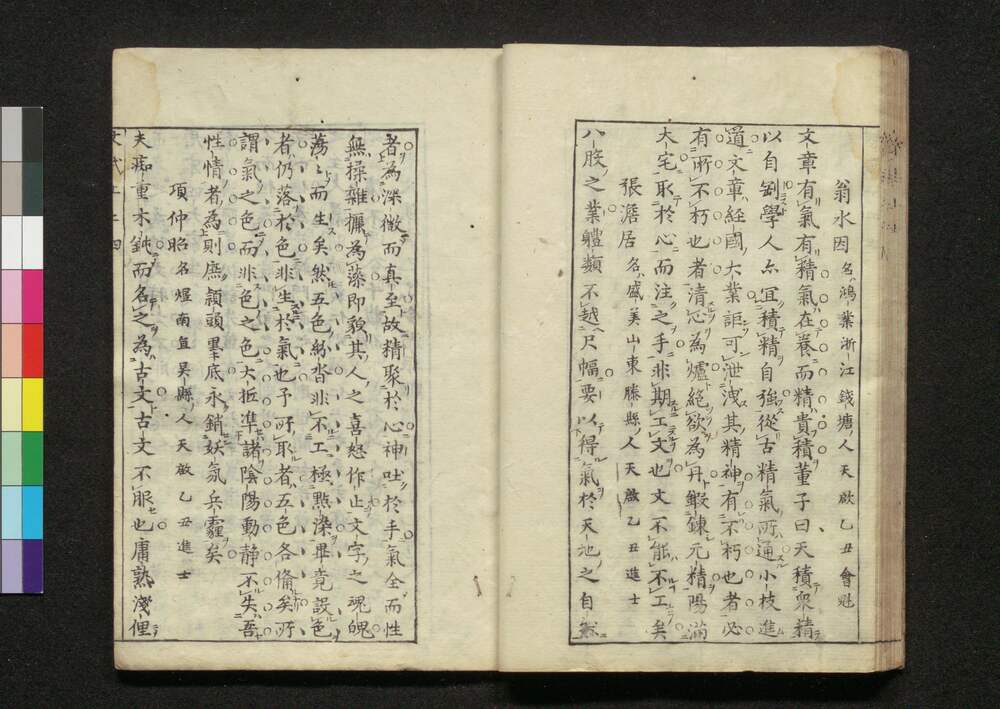 翁水因 名鴻業浙江錢塘人天啟乙丑會魁
文章有氣有精氣在養而精貴積董子曰天積衆精
以自剛學人亦宜積精自強從古精氣所通小枝進
道文章經國大業詎可泄洩其精神有不朽也者必
有所不朽也者清心為爐絕欲為丹鍛鍊元精陽滿
大宅取於心而注之手非期工文也文不能不工矣
張澹居 名盛美山東滕縣人天啟乙丑進士
八股之業軆類不越尺幅要以得氣於天地之自然
者為深微而真至故精聚於心神吐於手氣全而性
無操雜攦為藻即貌其人之喜怒作止文字之魂魄
蕩々而生矣然五色紛沓非不工極點染畢竟設色
者仍落於色非生於氣也予所取者五色各備矣所
謂氣之色而非色之色大抵凖諸陰陽動静不失吾
性情者為則庶穎頭墨底永銷妖氛兵霾矣
項仲昭 名煜南直吳縣人天啟乙丑進士
夫痴重木鈍而名之為古文古文不服也庸熟淺俚